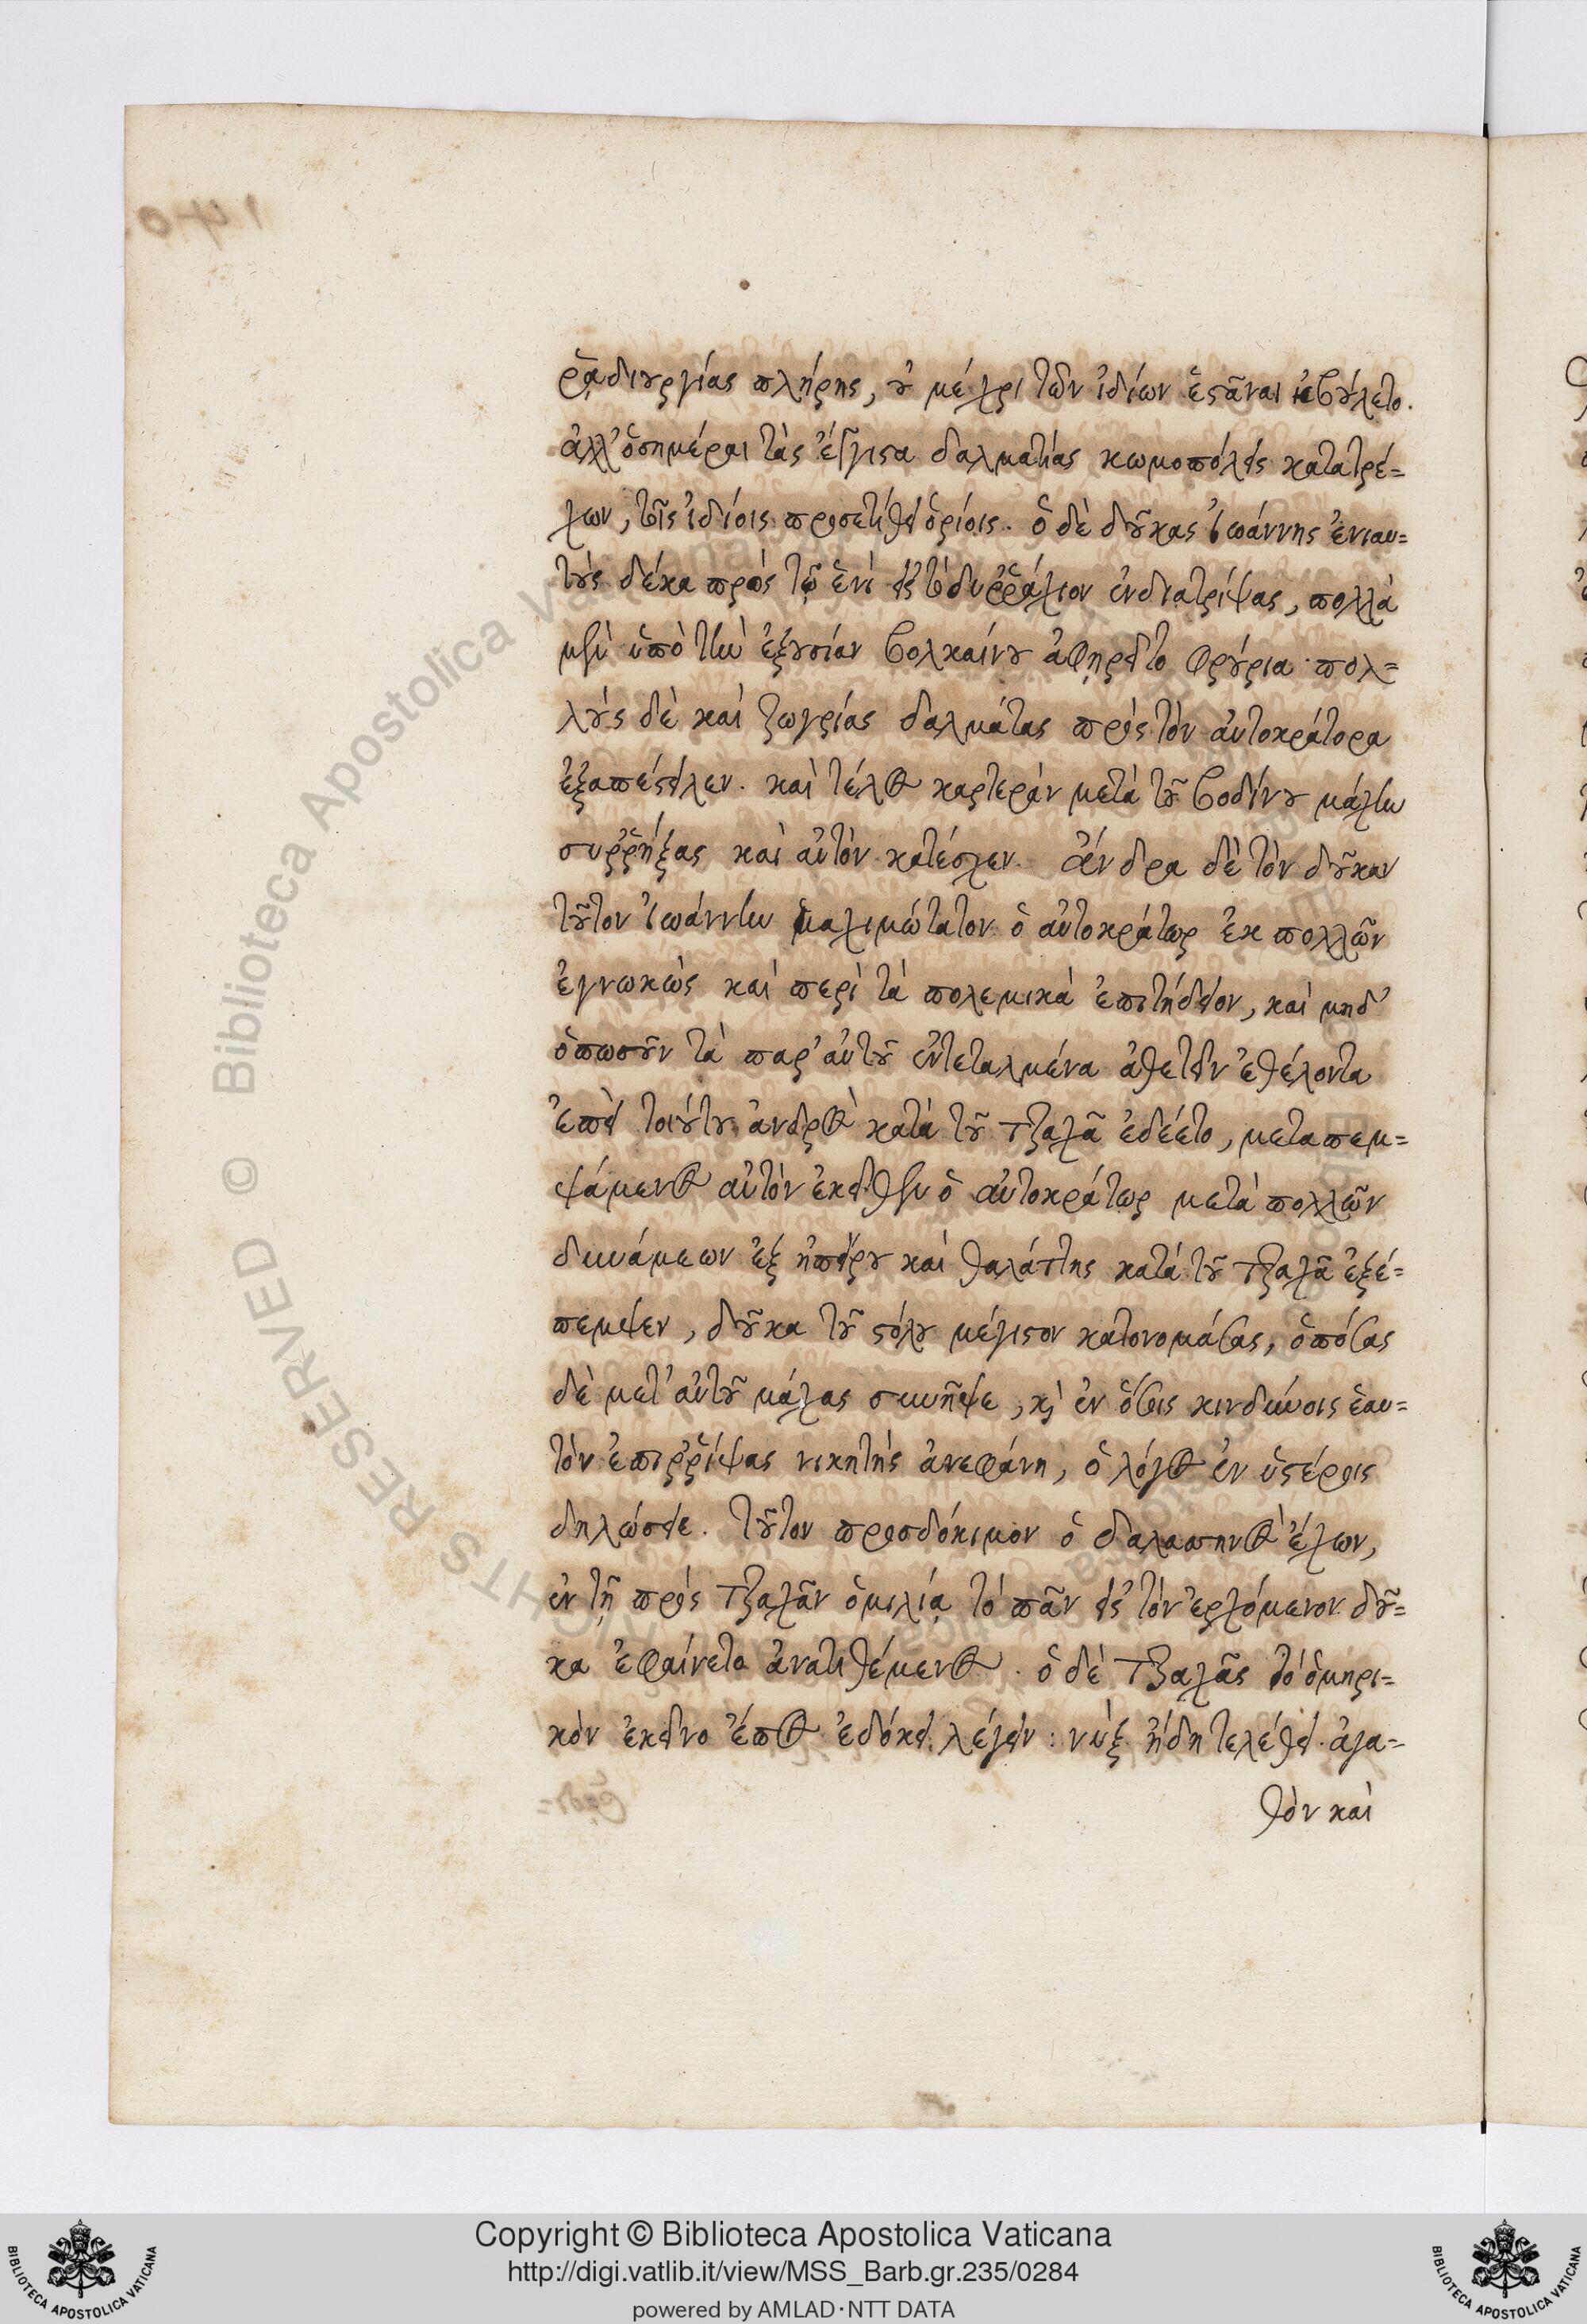 ῥᾳδιουργίας πλήρης, οὐ μέχρι τῶν ἰδίων ἑστᾶναι ἠβούλετο.
ἀλλ' ὁσημέραι τὰς ἔγγιστα δαλματίας κωμοπόλεις κατατρέ=
χων, τοῖς ἰδίοις προσετίθει ὁρίοις. ὁ δὲ δοῦκας ἰωάννης ἐνιαυ=
τοὺς δέκα πρὸς τῷ ἑνὶ εἰς τὸ δυῤῥάχιον ἐνδιατρίψας, πολλὰ
μὲν ὑπὸ τὴν ἐξουσίαν βολκαίνου ἀφῃρεῖτο φρούρια· πολ=
λοὺς δὲ καὶ ζωγρίας δαλμάτας πρὸς τὸν αὐτοκράτορα
ἐξαπέστειλεν. καὶ τέλος καρτερὰν μετὰ τοῦ βοδίνου μάχην
συῤῥήξας καὶ αὐτὸν κατέσχεν. ἄνδρα δὲ τὸν δοῦκαν
τοῦτον ἰωάννην μαχιμώτατον ὁ αὐτοκράτωρ ἐκ πολλῶν
ἐγνωκὼς καὶ περὶ τὰ πολεμικὰ ἐπιτήδειον, καὶ μηδ'
ὁπωσοῦν τὰ παρ' αὐτοῦ ἐντεταλμένα ἀθετεῖν ἐθέλοντα
ἐπεὶ τοιούτου ἀνδρὸς κατὰ τοῦ τζαχᾶ ἐδέετο, μεταπεμ=
ψάμενος αὐτὸν ἐκεῖθεν ὁ αὐτοκράτωρ μετὰ πολλῶν
δυνάμεων ἐξ ἠπείρου καὶ θαλάττης κατὰ τοῦ τζαχᾶ ἐξέ=
πεμψεν, δοῦκα τοῦ στόλου μέγιστον κατονομάσας, ὁπόσας
δὲ μετ' αὐτοῦ μάχας συνῆψε, κὶ ἐν ὅσοις κινδύνοις ἑαυ=
τὸν ἐπιῤῥίψας νικητὴς ἀνεφάνη, ὁ λόγος ἐν ὑστέροις
δηλώσειε. τοῦτον προσδόκιμον ὁ δαλασηνὸς ἔχων,
ἐν τῇ πρὸς τζαχᾶν ὁμιλίᾳ τὸ πᾶν εἰς τὸν ἐρχόμενον δοῦ=
κα ἐφαίνετο ἀνατιθέμενος. ὁ δὲ τζαχᾶς τὸ ὁμηρι=
κὸν ἐκεῖνο ἔπος ἐδόκει λέγειν: νὺξ ἤδη τελέθει. ἀγα=
θὸν καὶ
Copyright © Biblioteca Apostolica Vaticana
http://digi.vatlib.it/view/MSS_Barb.gr.235/0284
powered by AMLAD·NTT DATA